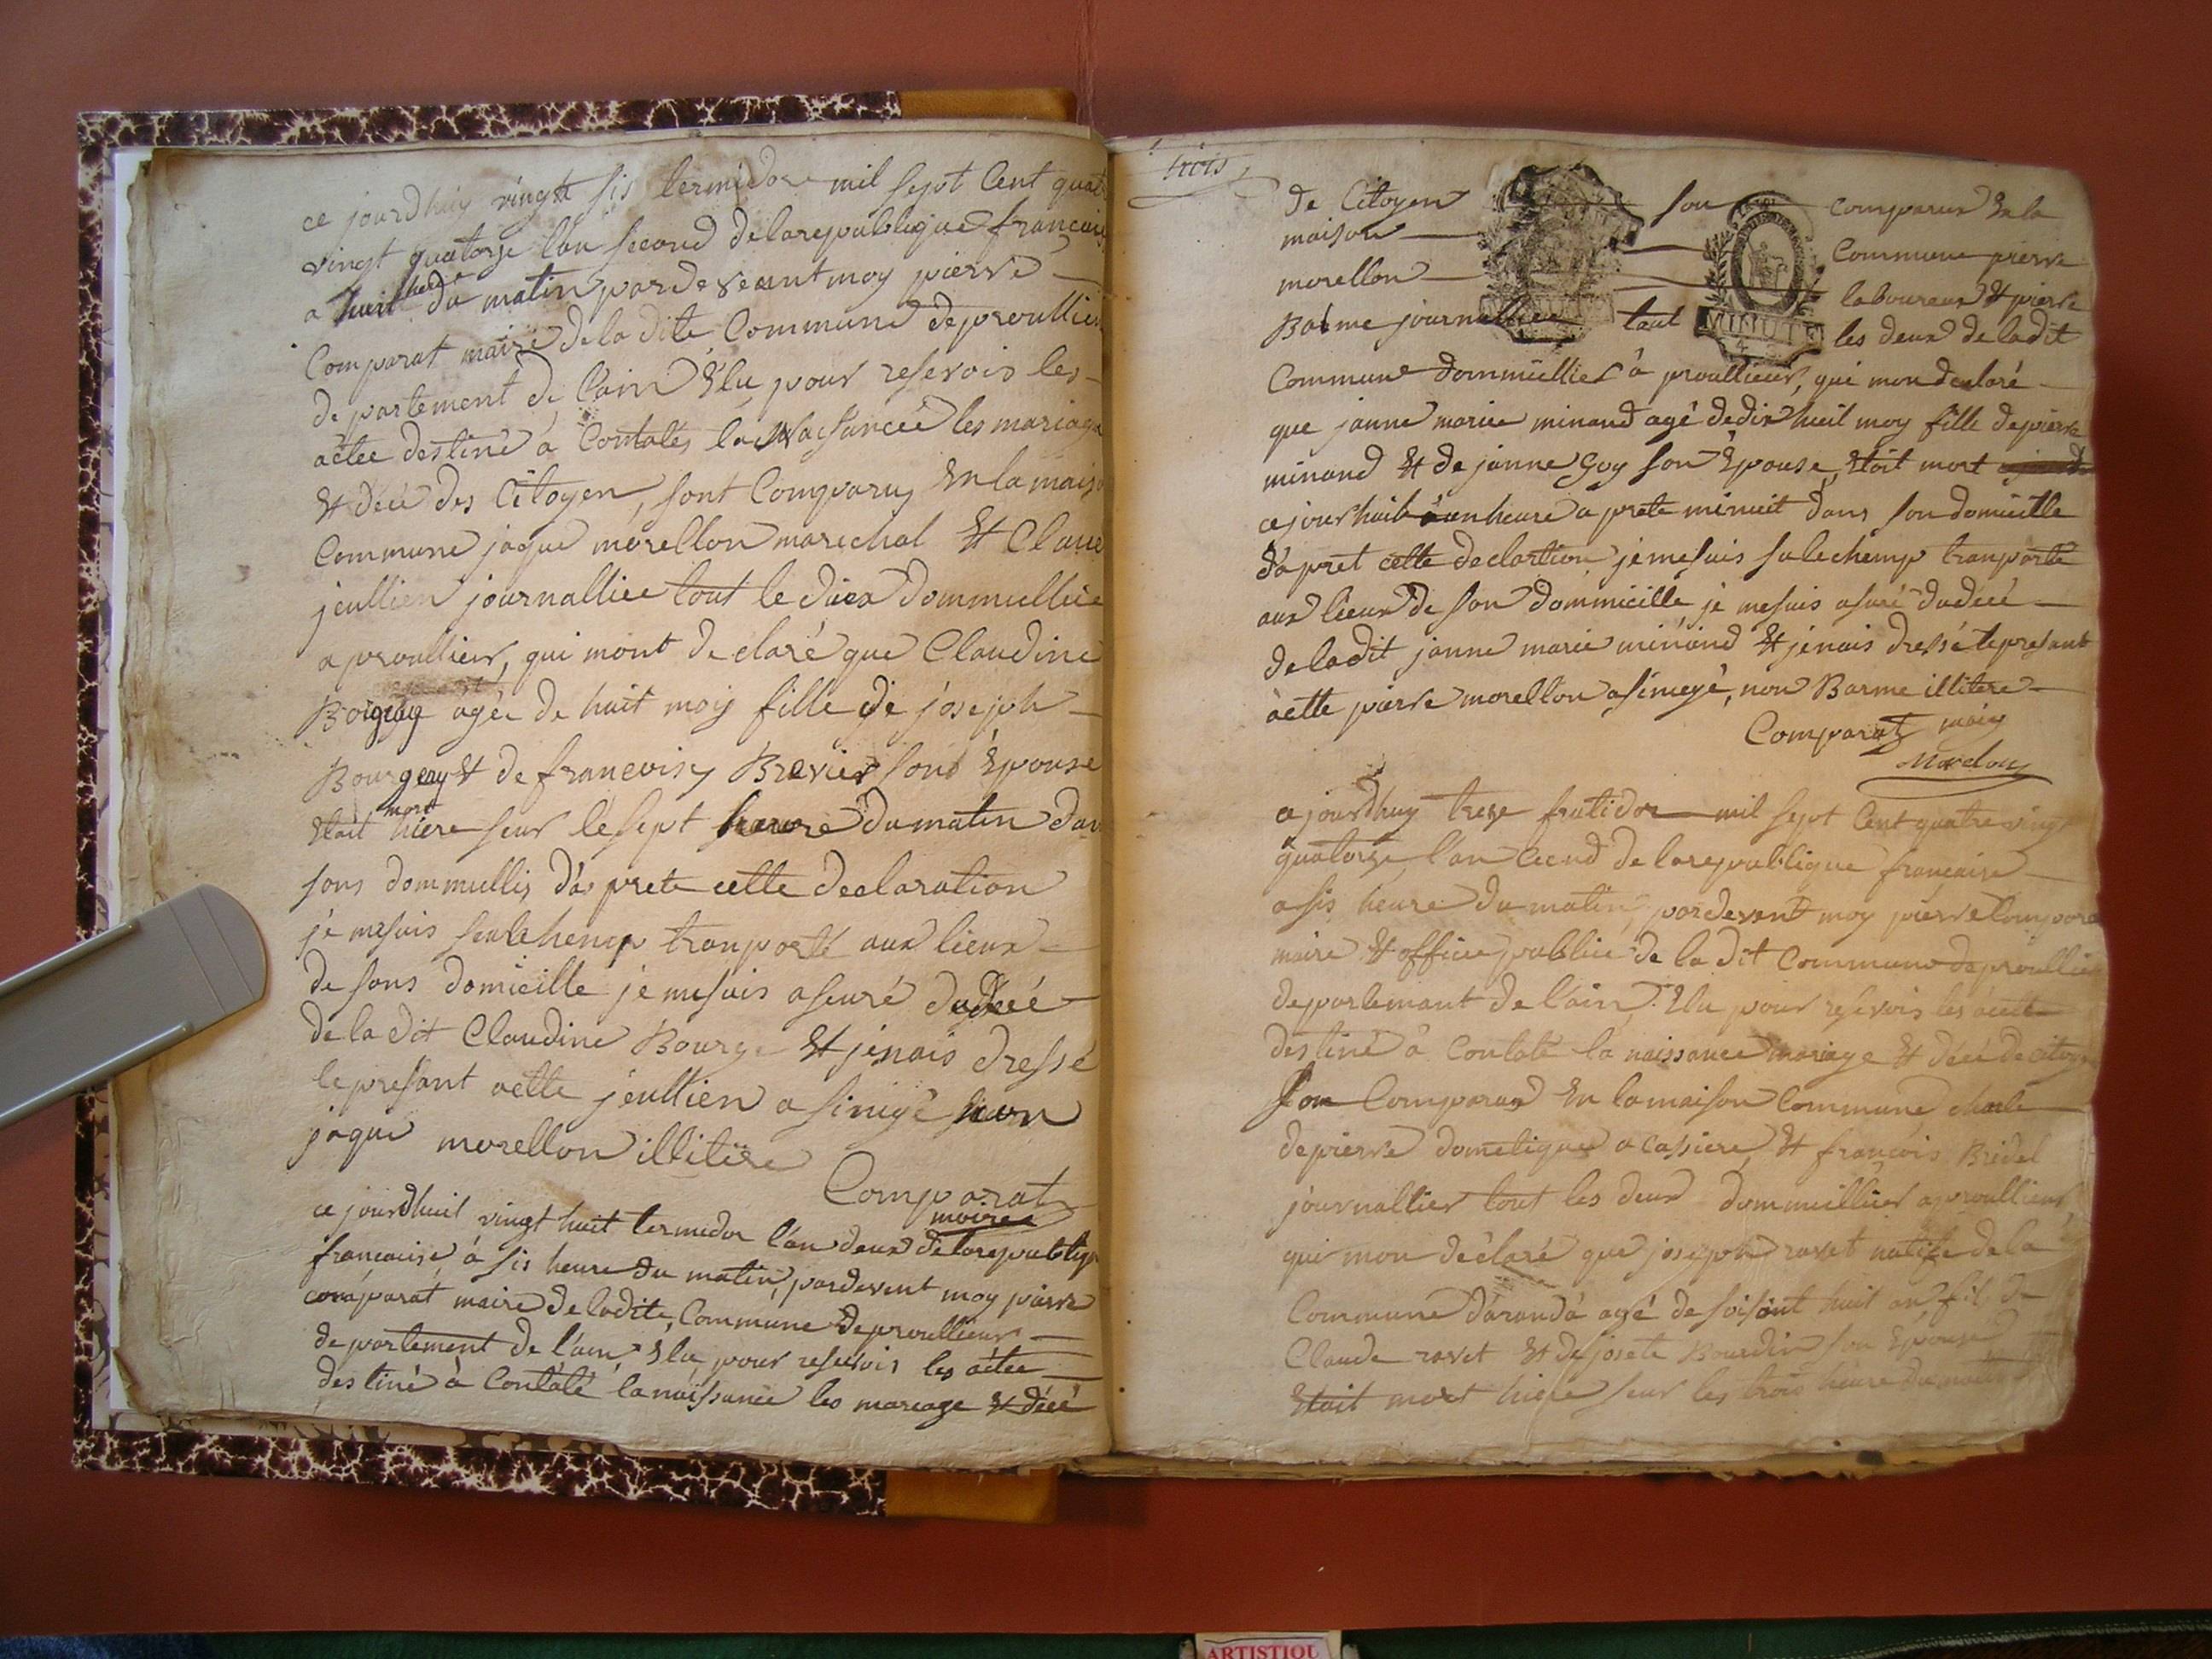 ce jourdhuy vingt sis termidore mil sept Cent quat
vingt quatorze l'an second delarepublique francais
a huit heure du matin pardeveant moy pierre
Comparat maire deladite Commune deproullieu
departement de l'ain Elu pour reservois les
actee destiné a Contatés la Naisancée les mariage
Et décé des Citoyen, sont Comparuy En la maiso
Commune jaque morellon marechal Et Claue
jeullien journalliee tout le dieux dommiellie
a proullieur, qui mont declaré que Claudine
Boigeay agée de huit moy fille de joseph
Bourgeay Et de francoisy Brevier sond Epouse
Etait mort hiere seur le sept heure du matin dan
sons dommiellis, d'a prete cette declaration
je mesuis seulechemp tranporté aux lieux
de sons domicille je mesuis aseuré dudécé
de la dit Claudine Bourge Et jenais dressé
le presant actte jeullien a sinigé non
jaque morellon illitire
Comparat
maire
ce jourdhuit vingt huit termidor l'an deux delarepublique
francaise, á sis heure du matin, pardevent moy pierre
comparat maire deladite Commune deproullieur
departement de l'ain Elu pour resevois les actee
destiné à Contaté lanaissance les mariage Et décé
trois
de Citoyen son comparux En la
maison Commune pierre
morellon laboureur Et pierre
Barme journallier tout les deux de ladit
MINUTE
Commune dommiellier à proullieur, qui mon declaré
que janne mariee minand agé dedix huit moy fille depierre
minand Et de janne Goy son Epouse, Etoit mort
cejourhuit á unheure a prete minuit dans son domicille
d'apret cette declartion je mesuis sulechemp tranporté
aux lieux de son dommicille je mesuis asuré dudécé
deladit janne marie minand Et jenais dressé lepresant
actte pierre morellon asinegé, non Barme illitere
Comparat maire
Morelon
cejourdhuy treze frutidor mil sept Cent quatre ving
quatorze, l'an Cecnd de larepublique francaise
a sis heure du matin, pardevent moy pierre Compara
maire Et officie publice de la dit Commune deproullieu
departemant de l'ain. Elu pour resevois les actte
destiné à Contaté la naissance mariage Et décé de citoye
son Comparux En lamaison Commune charle
depierre dometique a Cassiere, Et francois Bridel
journallier tout les deux dommiellier aproullieur,
qui mon déclaré que joseph ravet natife dela
Commune d'aranda agé de soisant huit an fils de
Claude ravet Et de josete Bourdin son Epouse
Etait mort hiere seur les trois heure du matin
ARTISTIQU